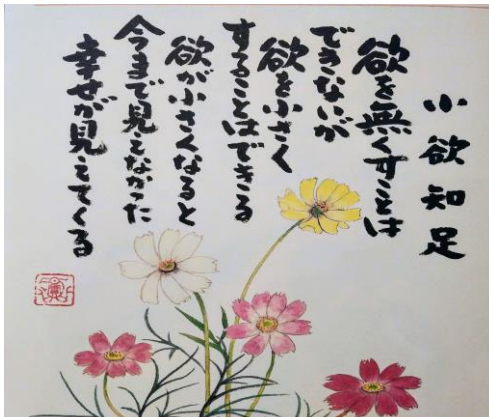 小欲知足
欲を無くすことは
できないが
欲を小さく
することはできる
欲が小さくなると
今まで見えなかった
幸せが見えてくる